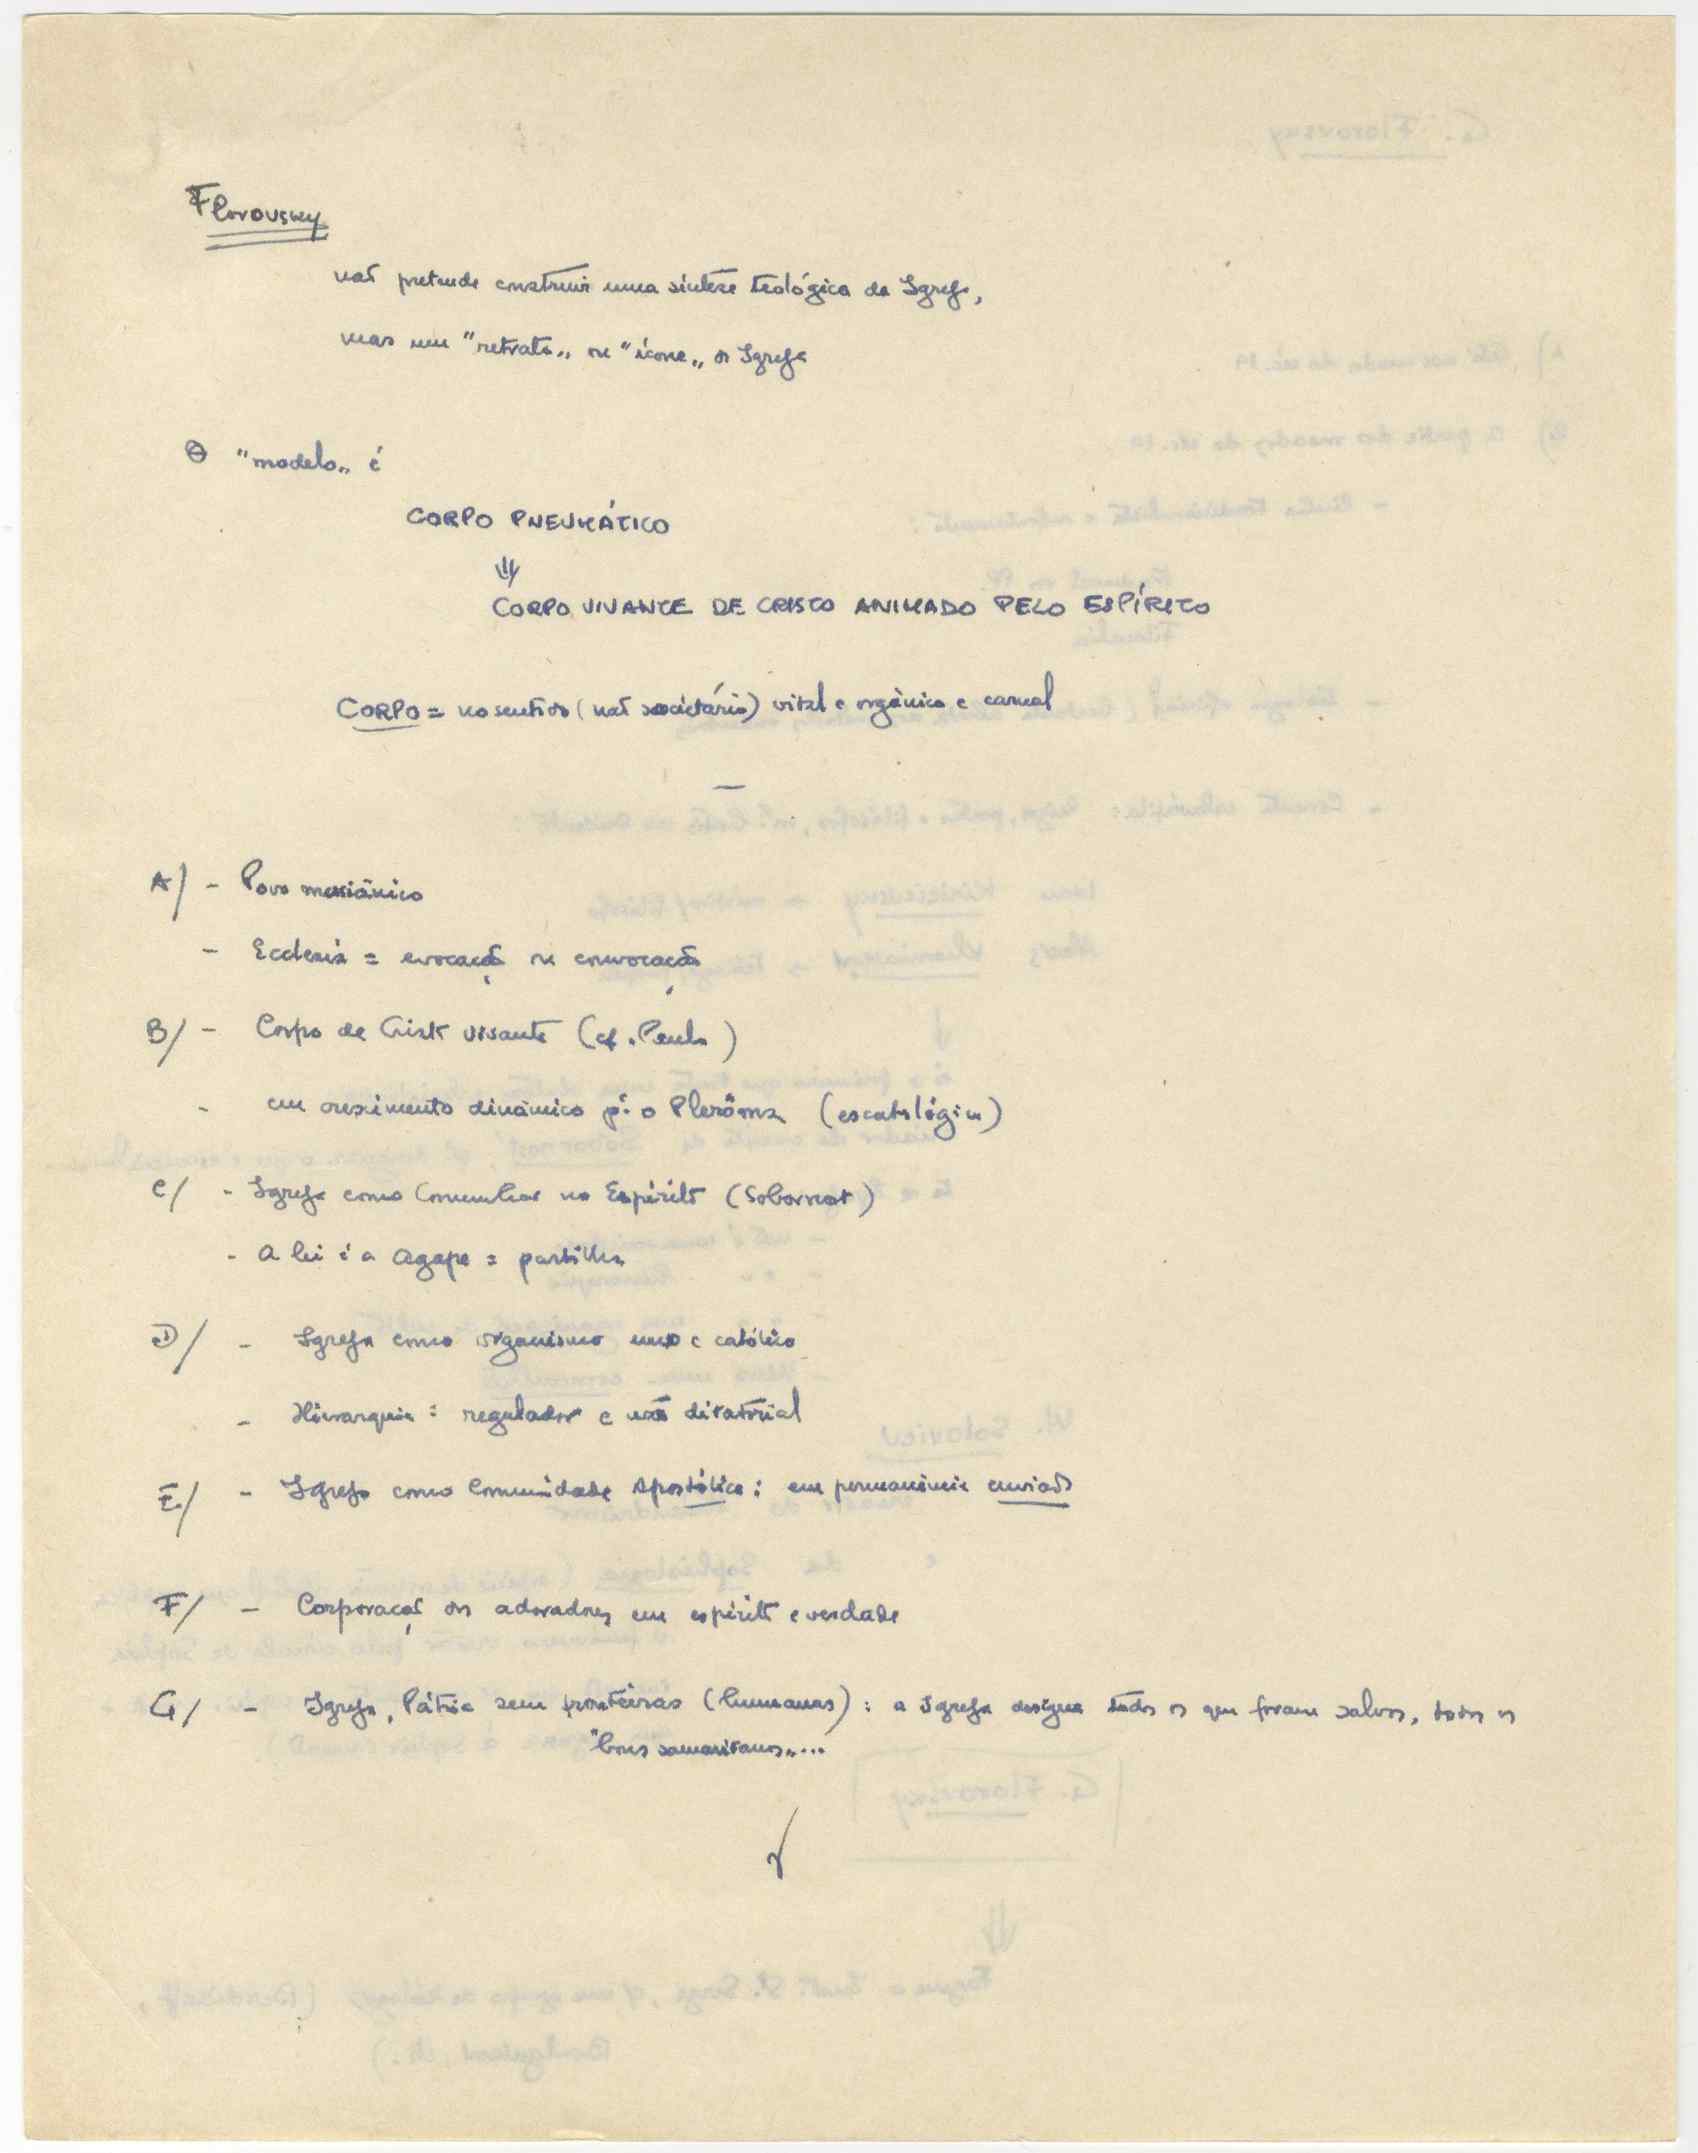 Florovsky
não pretende construir uma síntese teológica da Igreja,
mas um "retrato" ou "ícone" da Igreja
O "modelo" é
CORPO PNEUMÁTICO
⇓
CORPO VIVANTE DE CRISTO ANIMADO PELO ESPÍRITO
CORPO = no sentido (não societário) vital e orgânico e carnal
—
A/ - Povo messiânico
- Ecclesia = evocação ou convocação
B/ - Corpo de Cristo vivante (cf. Paulo)
- em crescimento dinâmico p.ª o Plerôma (escatológico)
C/ - Igreja como Comunhão no Espírito (Sobornost)
- A lei é a Agape = partilha
D/ - Igreja como organismo uno e católico
- Hierarquia: regulador e não ditatorial
E/ - Igreja como Comunidade Apostólica: em permanência enviada
F/ - Corporação dos adoradores em espírito e verdade
G/ - Igreja, Pátria sem fronteiras (humanas): a Igreja designa todos os que foram salvos, todos os
"bons samaritanos"...